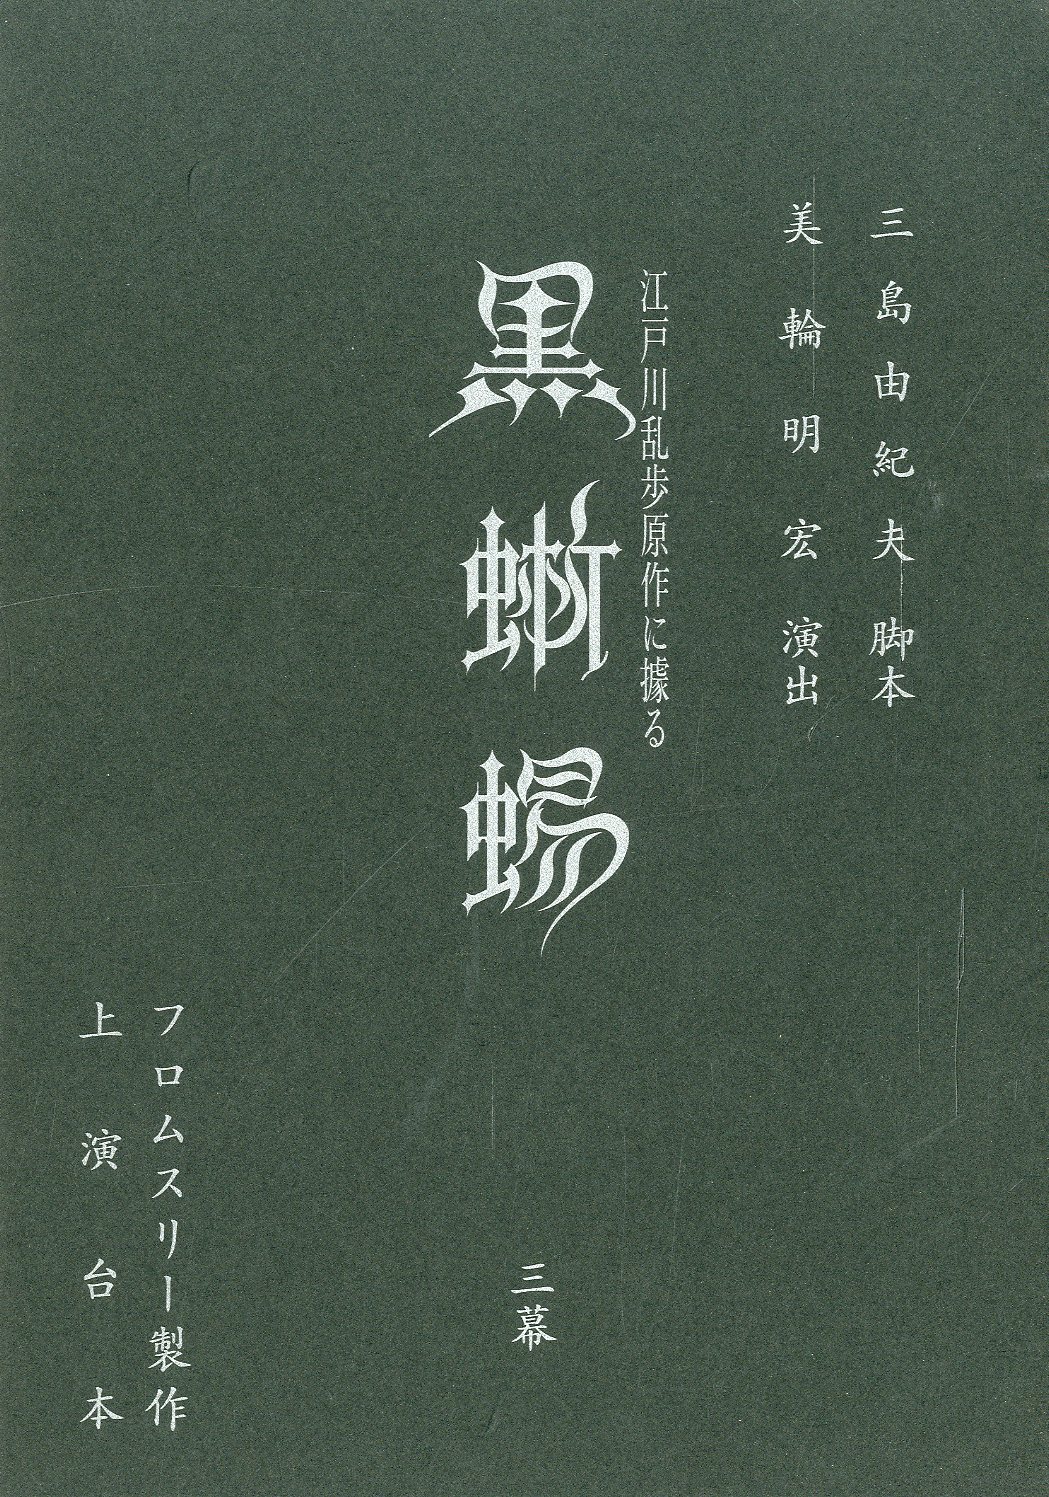 三島由紀夫 脚本
美輪明宏 演出
江戸川乱歩原作に據る
黒蜥蜴
三幕
フロムスリー製作
上演台本